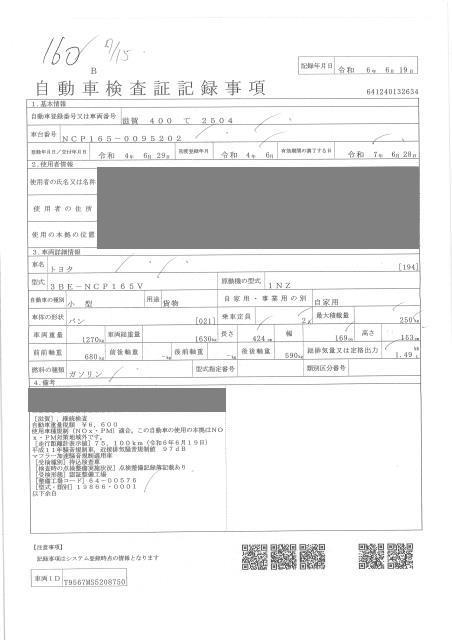 160 9/15
B
記録年月日 令和 6年 6月19日
自動車検査証記録事項
641240132634
1.基本情報
自動車登録番号又は車両番号 滋賀 400 て 2504
車台番号 NCP165-0095202
登録年月日/交付年月日 令和 4年 6月29日 初度登録年月 令和 4年 6月 有効期間の満了する日 令和 7年 6月28日
2.使用者情報
使用者の氏名又は名称
使用者の住所
使用の本拠の位置
3.車両詳細情報
車名 トヨタ [194]
型式 3BE-NCP165V 原動機の型式 1NZ
自動車の種別 小型 用途 貨物 自家用・事業用の別 自家用
車体の形状 バン [021] 乗車定員 2人 最大積載量 250kg
車両重量 1270kg 車両総重量 1630kg 長さ 424cm 幅 169cm 高さ 153cm
前前軸重 680kg 前後軸重 -kg 後前軸重 -kg 後後軸重 590kg 総排気量又は定格出力 1.49 kW L
燃料の種類 ガソリン 型式指定番号 類別区分番号
4.備考
[滋賀],継続検査
自動車重量税額 ¥6,600
使用車種規制(NOx・PM)適合,この自動車の使用の本拠はNO
x・PM対策地域外です。
[走行距離計表示値]75,100km(令和6年6月19日)
平成11年騒音規制車,近接排気騒音規制値 97dB
マフラー加速騒音規制適用車
[受検種別]持込検査車
[検査時の点検整備実施状況]点検整備記録簿記載あり
[受検形態]認証整備工場
[整備工場コード]64-00576
[型式・類別]19866-0001
以下余白
[注意事項]
記録事項はシステム登録時点の情報となります
車両ID T9567M55208750